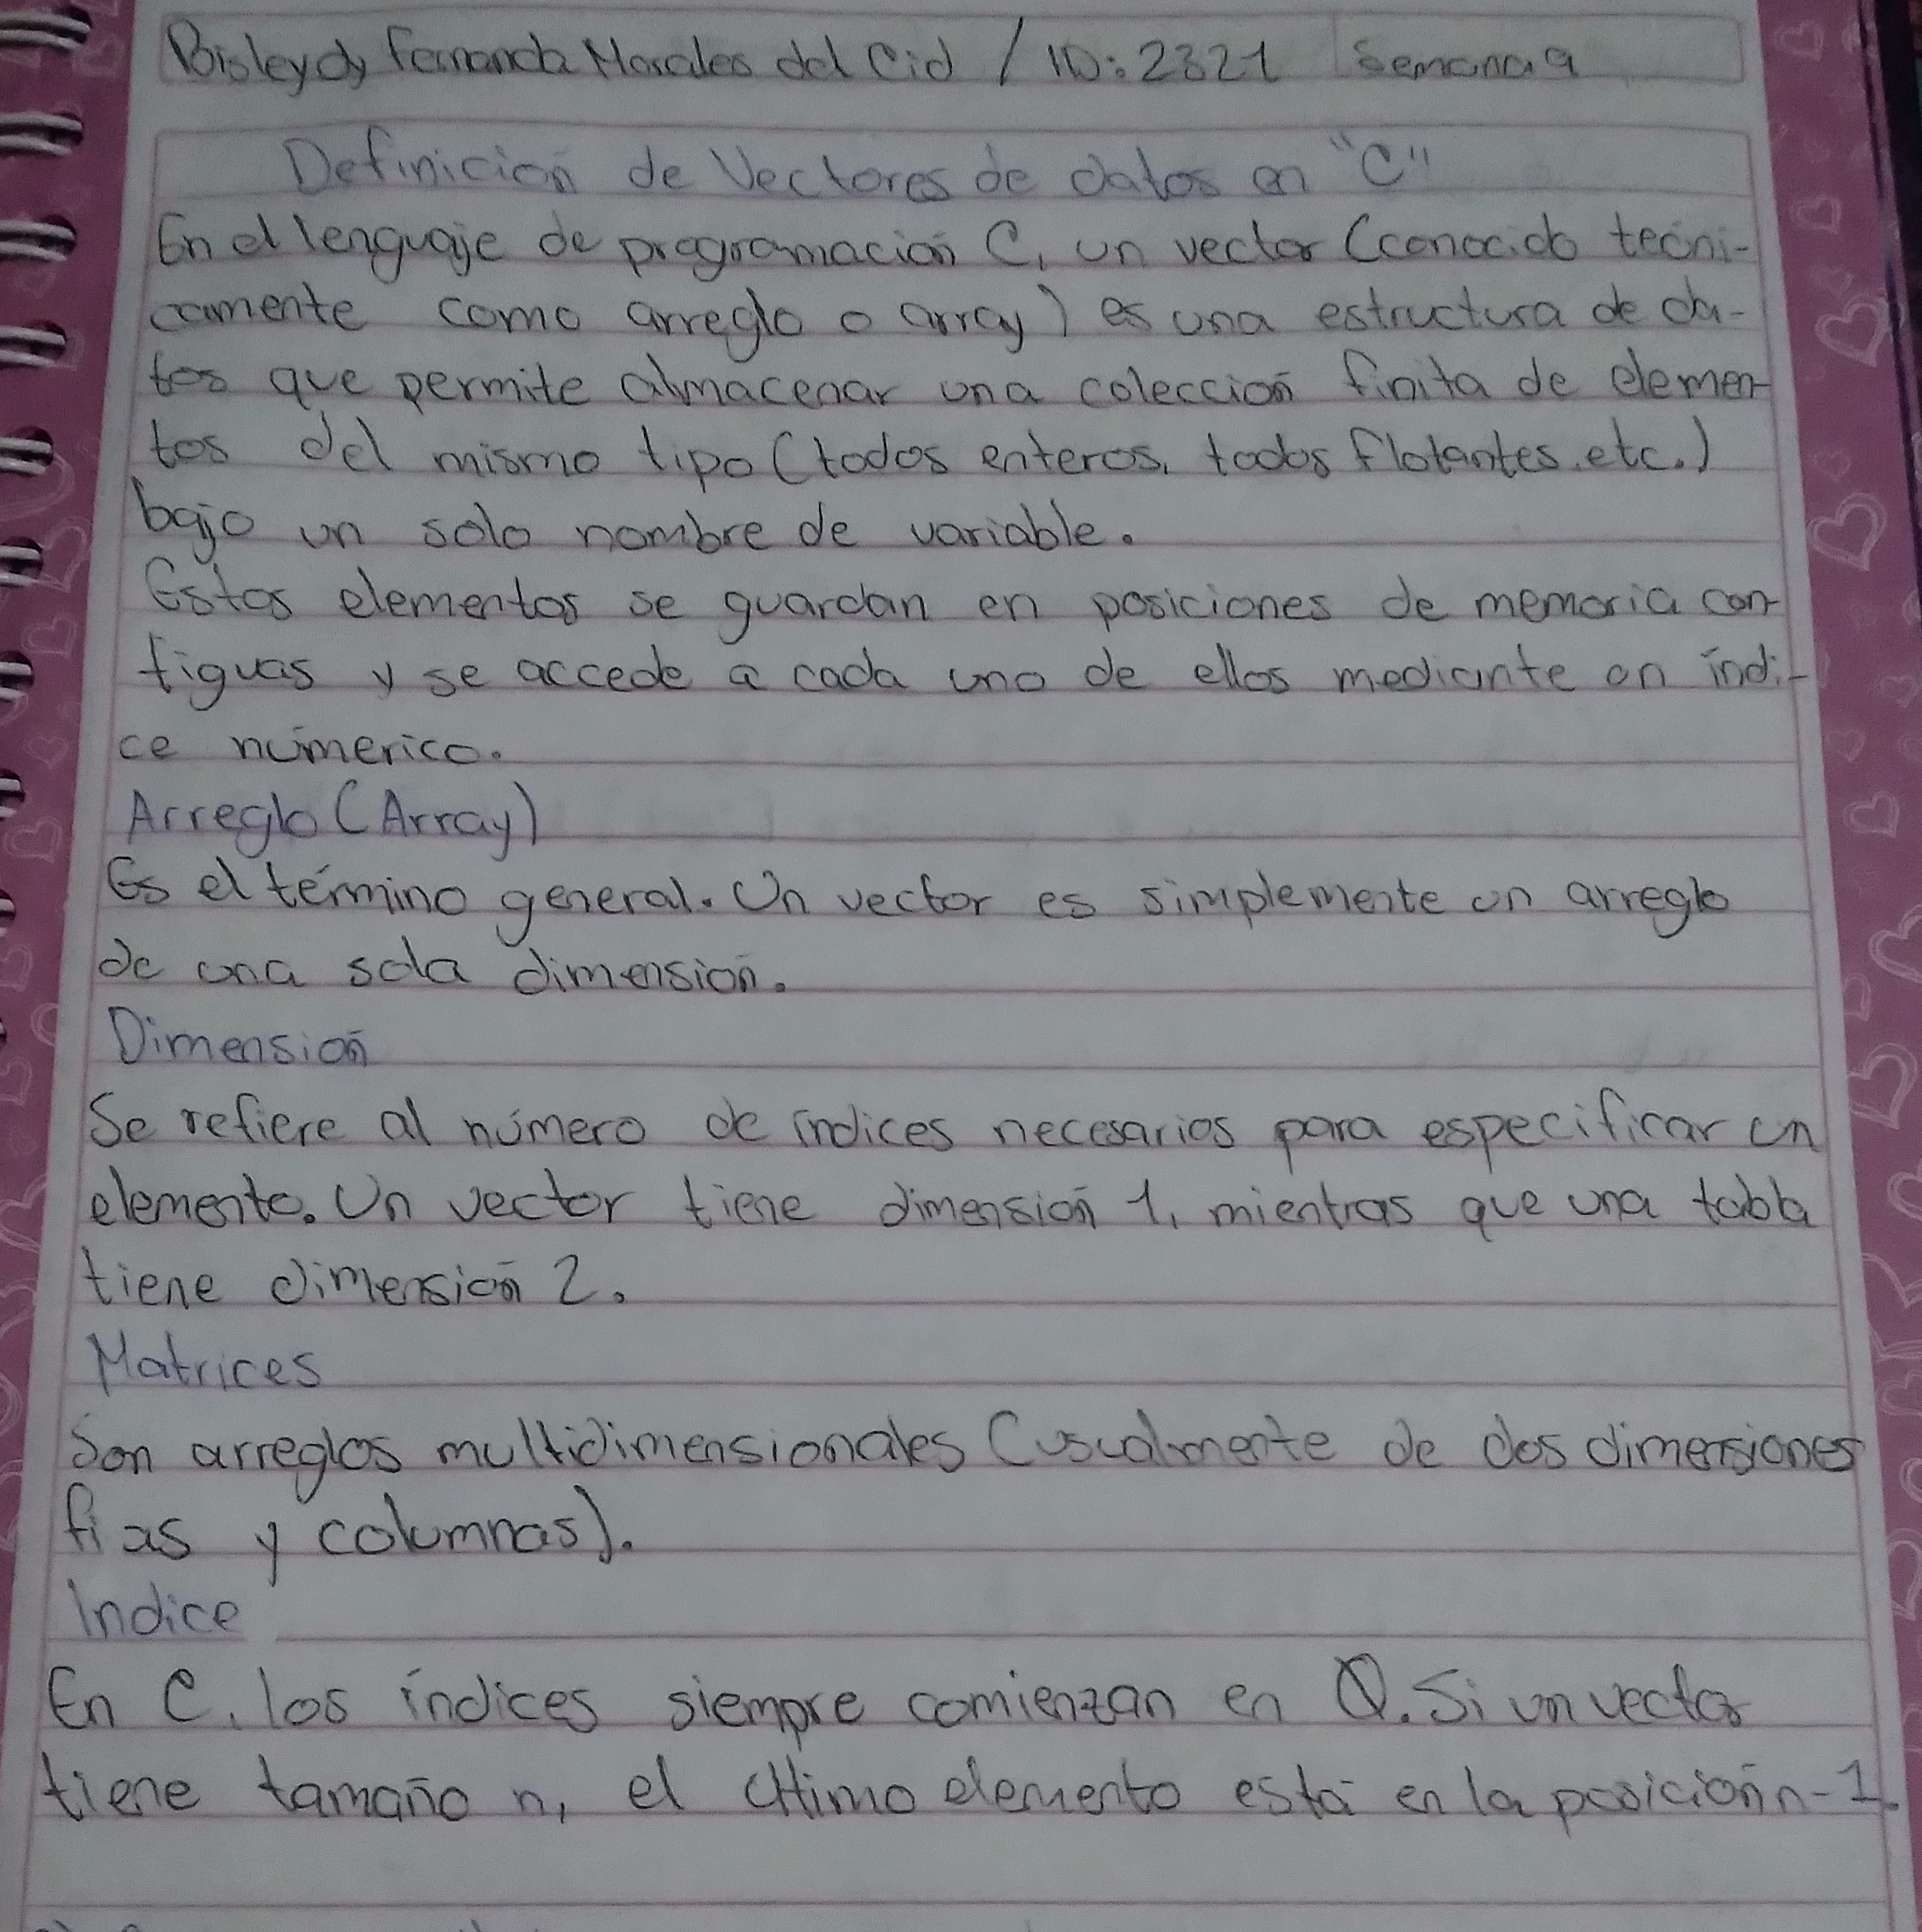 Bisleydy Fernanda Morales del Cid / ID: 2321 Semana 9
Definición de Vectores de datos en "C"
En el lenguaje de programación C, un vector (conocido tecni-
camente como arreglo o array) es una estructura de da-
tos que permite almacenar una colección finita de elemen-
tos del mismo tipo (todos enteros, todos flotantes, etc.)
bajo un solo nombre de variable.
Estos elementos se guardan en posiciones de memoria con-
tiguas y se accede a cada uno de ellos mediante un índi-
ce númerico.
Arreglo (Array)
Es el término general. Un vector es simplemente un arreglo
de una sola dimensión.
Dimensión
Se refiere al número de índices necesarios para especificar un
elemento. Un vector tiene dimensión 1, mientras que una tabla
tiene dimensión 2.
Matrices
Son arreglos multidimensionales (usualmente de dos dimensiones
fias y columnas).
Indice
En C, los índices siempre comienzan en 0. Si un vector
tiene tamaño n, el último elemento está en la posición n-1.